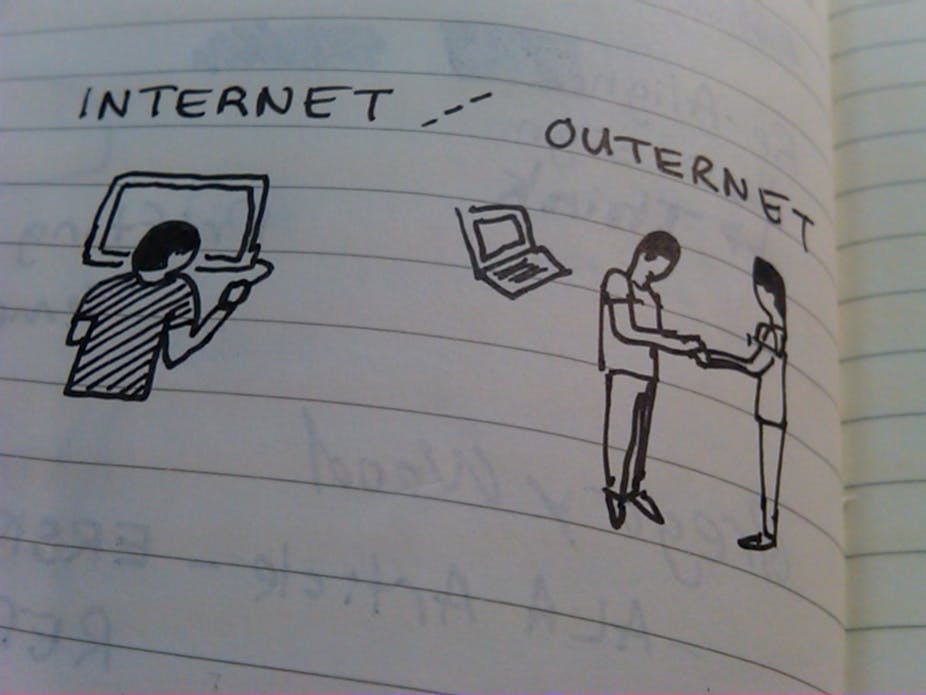 INTERNET --
OUTERNET